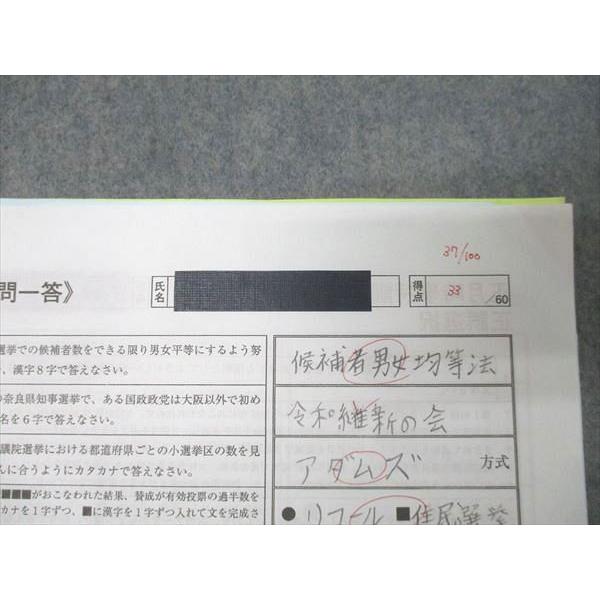 37/100
問一答》
氏名
得点 33 /60
選挙での候補者数をできる限り男女平等にするよう努
、漢字8字で答えなさい。
候補者男女均等法
の奈良県知事選挙で、ある国政政党は大阪以外で初め
名を6字で答えなさい。
令和維新の会
議院選挙における都道府県ごとの小選挙区の数を見
んに合うようにカタカナで答えなさい。
アダムズ 方式
■■■■がおこなわれた結果、賛成が有効投票の過半数を
カナを1字ずつ、■に漢字を1字ずつ入れて文を完成さ
● リコール ■住民選挙